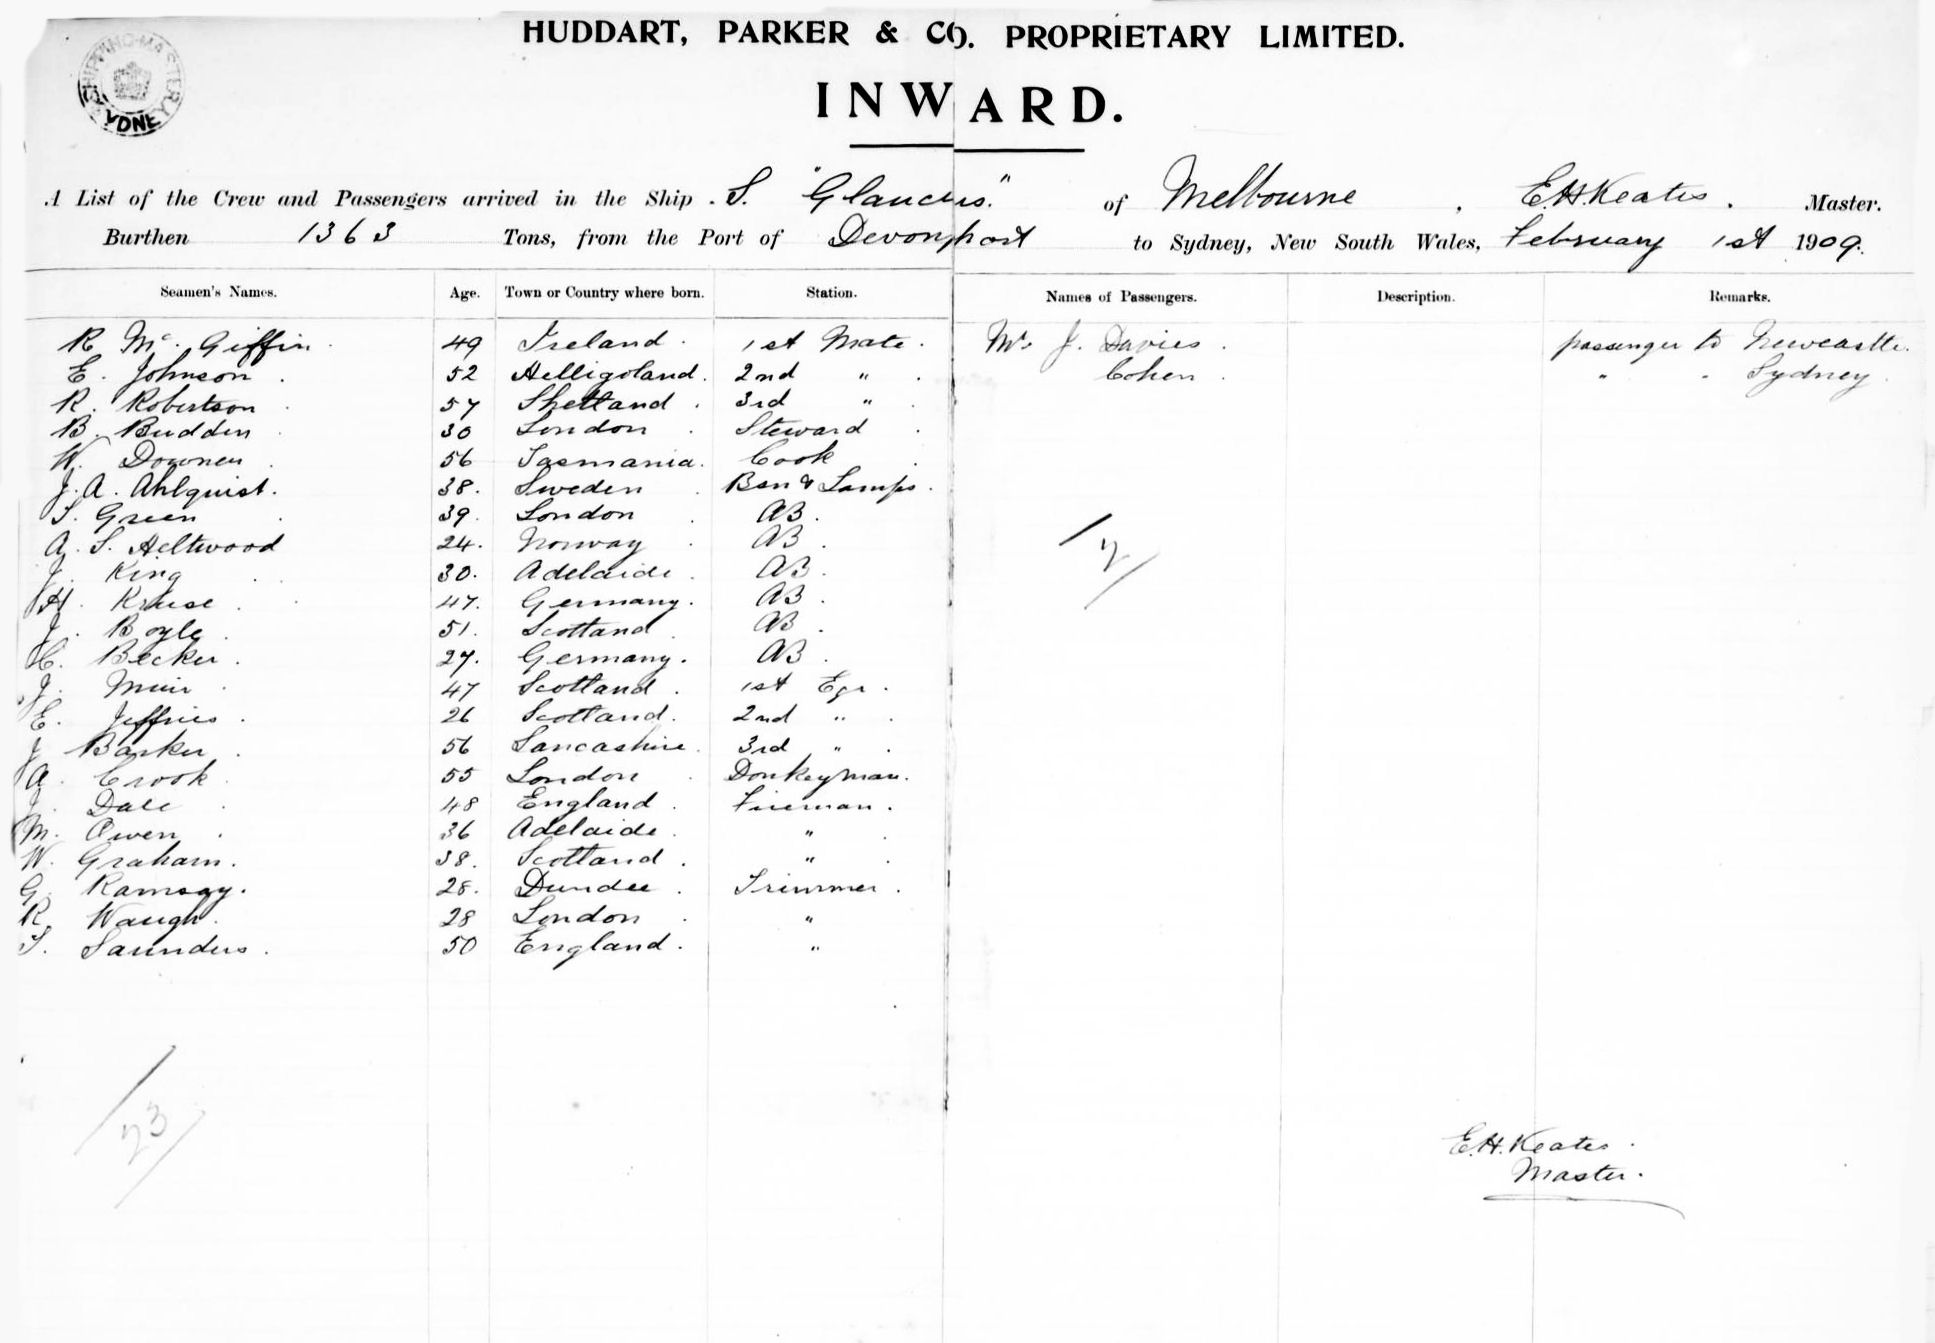 HUDDART, PARKER & CO. PROPRIETARY LIMITED.
INWARD.
SHIPPING MASTER SYDNE
A List of the Crew and Passengers arrived in the Ship S. "Glaucus." of Melbourne, E.H. Keates. Master.
Burthen 1363 Tons, from the Port of Devonport to Sydney, New South Wales, February 1st 1909.
Seamen's Names. Age. Town or Country where born. Station. Names of Passengers. Description. Remarks.
R Mc. Giffin. 49 Ireland. 1st Mate. Mr. J. Davies. passenger to Newcastle.
E. Johnson. 52 Helligoland. 2nd ". Cohen. " " Sydney.
R. Robertson. 57 Shetland. 3rd ".
B. Budden. 30 London. Steward.
W. Downen. 56 Tasmania. Cook.
J. A. Ahlquist. 38. Sweden. Bsn & Lamps.
S. Green. 39. London. AB.
A. S. Heltwood 24. Norway. AB.
J. King. 30. Adelaide. AB.
H. Kruse. 47. Germany. AB.
J. Boyle. 51. Scotland. AB.
C. Becker. 27. Germany. AB.
J. Muir. 47 Scotland. 1st Egr.
E. Jeffries. 26 Scotland. 2nd ".
J Barker. 56 Lancashire. 3rd ".
A. Crook. 55 London. Donkeyman.
J. Dale. 48 England. Fireman.
M. Owen. 36 Adelaide. ".
W. Graham. 38. Scotland. ".
G. Ramsay. 28. Dundee. Trimmer.
R. Waugh. 28 London. "
S. Saunders. 50 England. "
/2/
/23/
E.H. Keates.
Master.